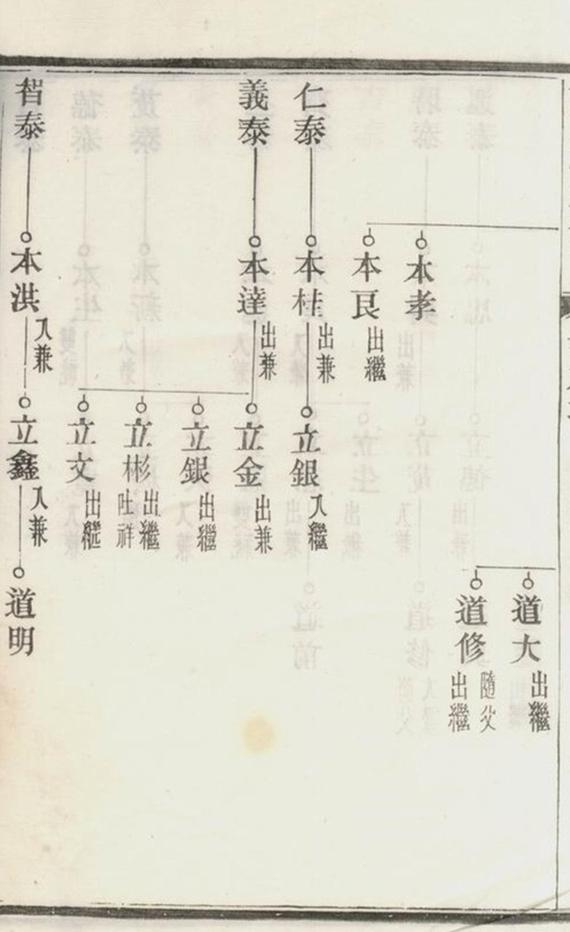 道大 出繼
道修 隨父出繼
本孝
本良 出繼
仁泰 本桂 出兼 立銀 入繼
義泰 本達 出兼 立金 出兼
立銀 出繼
立彬 出繼吐祥
立文 出繼
智泰 本洪 入兼 立鑫 入兼 道明